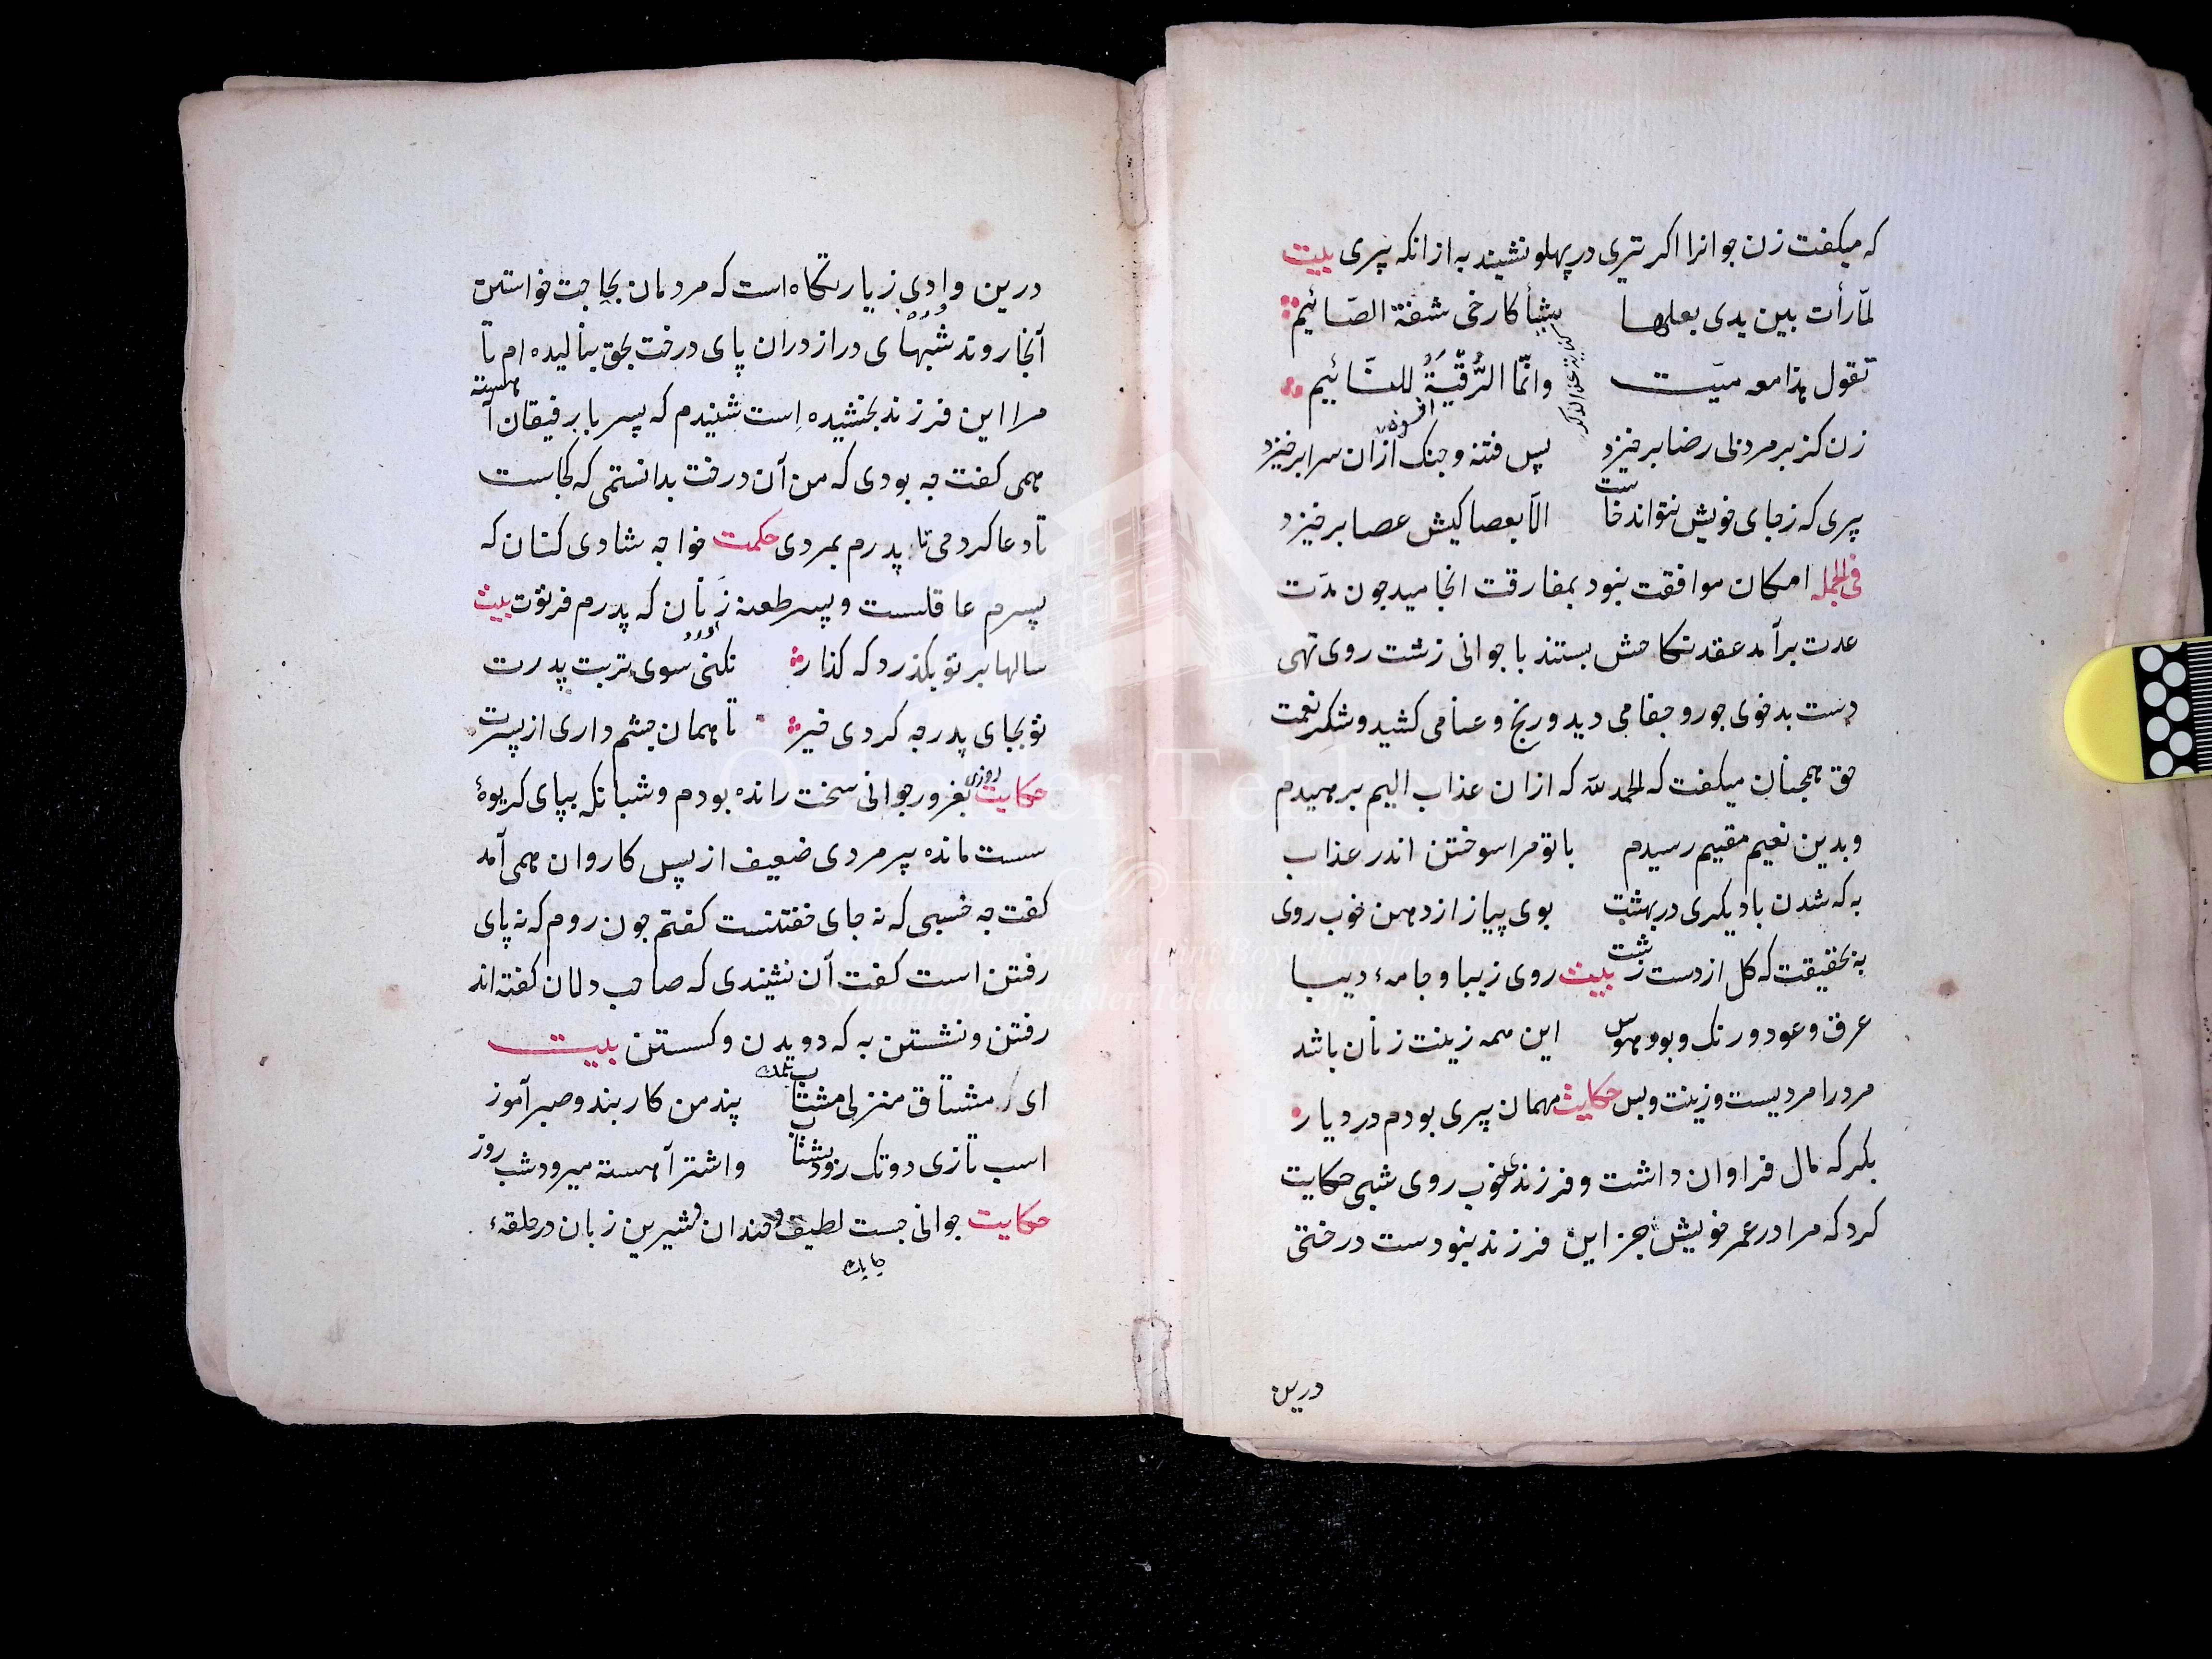 که میکفت زن جوانرا اکر تیری در پهلو نشیند به ازانکه پیری بیت
لمّا رأت بین یدی بعلها شیأ کارخی شفة الصّائیم
تقول هذا معه میّت وانّما الرُّقْیَةُ للنّائیم
کنایة عن الذکر
افسون
زن کز بر مرد بی رضا برخیزد پس فتنه و جنک ازان سرا برخیزد
پیری که ز جای خویش نتواند خاست الّا بعصا کیش عصا برخیزد
فی الجمله امکان موافقت نبود بمفارقت انجامید جون مدّت
عدت برآمد عقد نکاحش بستند با جوانی زشت روی تهی
دست بدخوی جور و جفا می دید و رنج و عنا می کشید و شکر نعمت
حق همچنان میکفت که الحمد لله که ازان عذاب الیم برهیدم
و بدین نعیم مقیم رسیدم با تو مرا سوختن اندر عذاب
به که شدن با دیکری در بهشت بوی پیاز از دهن خوب روی
به بحقیقت که کل از دست زشت بیت روی زیبا و جامهٔ دیبا
عرق و عود و رنک و بوو هوس این همه زینت زنان باشد
مرد را مردیست و زینت و بس حکایت مهمان پیری بودم در دیار
بکر که مال فراوان داشت و فرزندی خوب روی شبی حکایت
کرد که مرا در عمر خویش جز این فرزند نبودست درختی
درین
درین وادی زیارتکاه است که مردمان بحاجت خواستن
آنجا روند شبهای دراز دران پای درخت بحق بنالیده ام تا
مرا این فرزند بخشیده است شنیدم که پسر با رفیقان آهسته
همی کفت جه بودی که من آن درخت بدانستمی که کجاست
تا دعا کردمی تا پدرم بمردی حکمت خواجه شادی کنان که
پسرم عاقلست و پسر طعنه زَنان که پدرم فرتوت بیت
سالها بر تو بکذرد که کذار نکنی سوی تربت پدرت
تو بجای پدر جه کردی خیر تا همان جشم داری از پسرت
حکایت روزی بغرور جوانی سخت رانده بودم و شبانکه بپای کریوهٔ
سست مانده پیر مردی ضعیف از پس کاروان همی آمد
کفت جه خسبی که نه جای خفتنست کفتم جون روم که نه پای
رفتن است کفت آن نشیندی که صاحب دلان کفته اند
رفتن و نشستن به که دویدن و کسستن بیت
ای مشتاق منزلی مشتاب پند من کار بند و صبر آموز
اسب تازی دو تک رود بشتاب واشتر آهسته میرود شب روز
حکایت جوانی جست لطیف و خندان و شیرین زبان در حلقهٔ